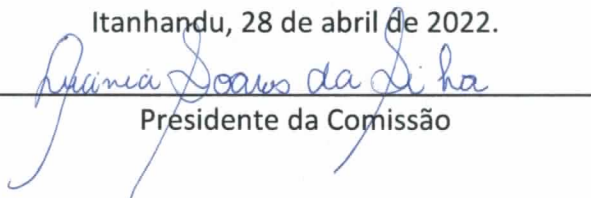 Itanhandu, 28 de abril de 2022.
Soares da Silva
Presidente da Comissão